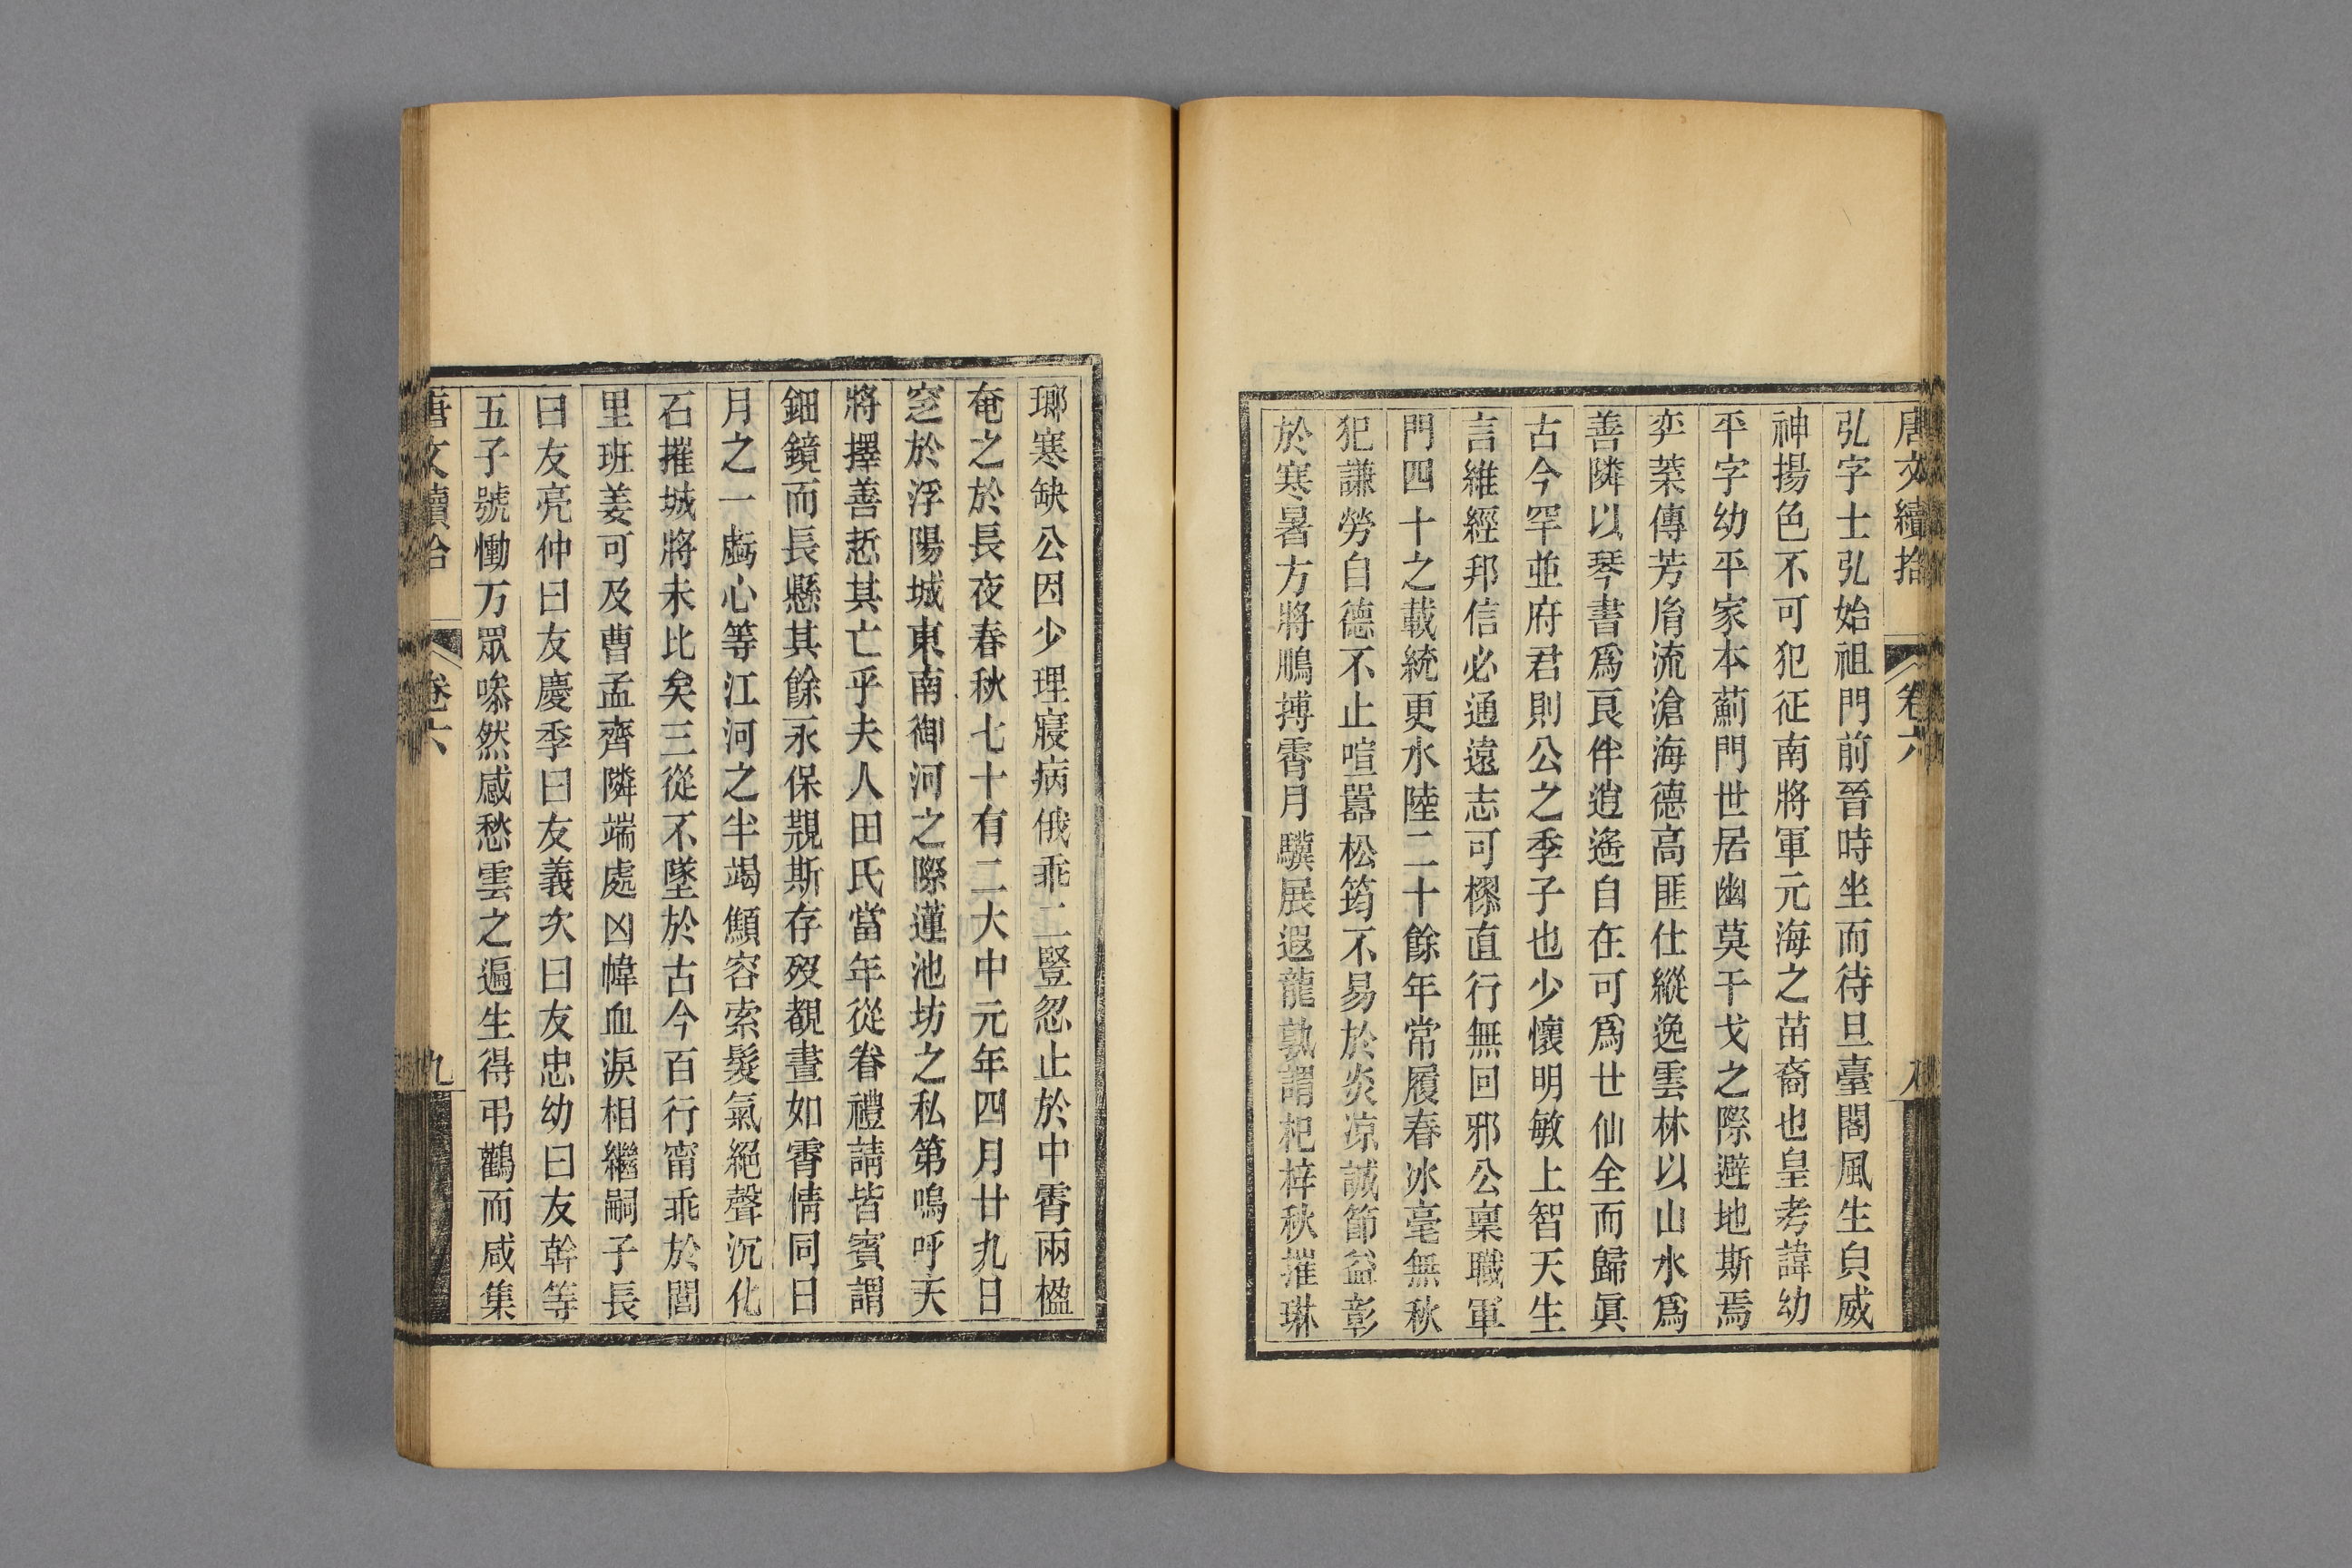 唐文續拾 卷六 八
弘字士弘始祖門前晉時坐而待旦臺閣風生貞威
神揚色不可犯征南將軍元海之苗裔也皇考諱幼
平字幼平家本薊門世居幽莫干戈之際避地斯焉
弈葉傳芳胤流滄海德高匪仕縱逸雲林以山水爲
善隣以琴書爲良伴逍遙自在可爲世仙全而歸眞
古今罕並府君則公之季子也少懷明敏上智天生
言維經邦信必通遠志可樛直行無回邪公稟職軍
門四十之載統更水陸二十餘年常履春冰毫無秋
犯謙勞自德不止喧囂松筠不易於炎凉誠節益彰
於寒暑方將鵬搏霄月驥展遐龍孰謂杞梓秋摧琳
瑯寒缺公因少理寢病俄乖二豎忽止於中霄兩楹
奄之於長夜春秋七十有二大中元年四月廿九日
窆於浮陽城東南御河之際蓮池坊之私第嗚呼天
將擇善惁其亡乎夫人田氏當年從眷禮請皆賓謂
鈿鏡而長懸其餘永保覬斯存歿覩晝如霄情同日
月之一齓心等江河之半竭顦容索髮氣絕聲沉化
石摧城將未比矣三從不墜於古今百行甯乖於閭
里班姜可及曹孟齊隣端處凶幃血淚相繼嗣子長
曰友亮仲曰友慶季曰友義次曰友忠幼曰友幹等
五子號慟万眾嘇然感愁雲之遍生得弔鸛而咸集
唐文續拾 卷六 九